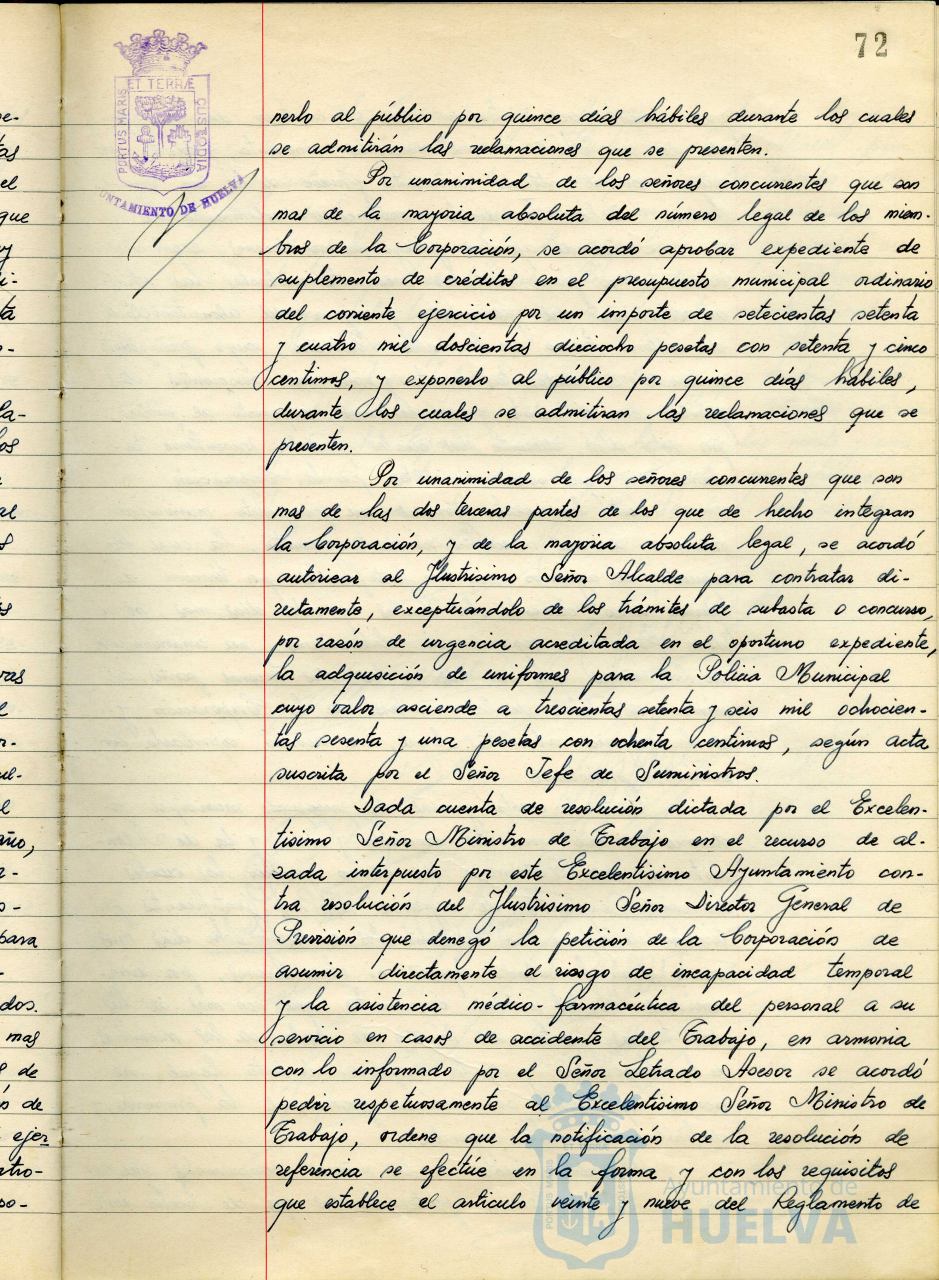 72
PORTUS MARIS ET TERRÆ CUSTODIA
UNTAMIENTO DE HUELVA
nerlo al público por quince días hábiles durante los cuales
se admitirán las reclamaciones que se presenten.
Por unanimidad de los señores concurrentes que son
mas de la mayoria absoluta del número legal de los miem-
bros de la Corporación, se acordó aprobar expediente de
suplemento de créditos en el presupuesto municipal ordinario
del corriente ejercicio por un importe de setecientas setenta
y cuatro mil doscientas dieciocho pesetas con setenta y cinco
centimos, y exponerlo al público por quince días hábiles,
durante los cuales se admitiran las reclamaciones que se
presenten.
Por unanimidad de los señores concurrentes que son
mas de las dos terceras partes de los que de hecho integran
la Corporación, y de la mayoria absoluta legal, se acordó
autorizar al Ilustrisimo Señor Alcalde para contratar di-
rectamente, exceptuándolo de los trámites de subasta o concurso,
por razón de urgencia acreditada en el oportuno expediente,
la adquisición de uniformes para la Policia Municipal
cuyo valor asciende a trescientas setenta y seis mil ochocien-
tas sesenta y una pesetas con ochenta centimos, según acta
suscrita por el Señor Jefe de Suministros.
Dada cuenta de resolución dictada por el Excelen-
tisimo Señor Ministro de Trabajo en el recurso de al-
zada interpuesto por este Excelentisimo Ayuntamiento con-
tra resolución del Ilustrisimo Señor Director General de
Previsión que denegó la petición de la Corporación de
asumir directamente el riesgo de incapacidad temporal
y la asistencia médico-farmacéutica del personal a su
servicio en casos de accidente del Trabajo, en armonia
con lo informado por el Señor Letrado Asesor se acordó
pedir respetuosamente al Excelentisimo Señor Ministro de
Trabajo, ordene que la notificación de la resolución de
referencia se efectúe en la forma y con los requisitos
que establece el articulo veinte y nueve del Reglamento de
Ayuntamiento de
HUELVA